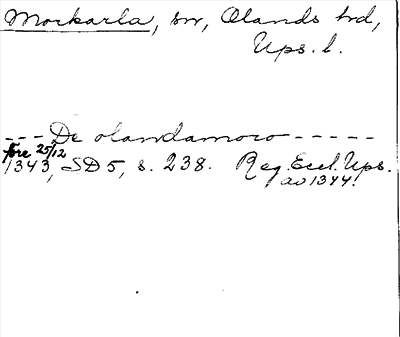 Morkarla, sn, Olands hd,
Ups. l.
--- De olandamoro -----
före 25/12
1343, SD 5, s. 238. Reg. Eccl. Ups.
av 1344.